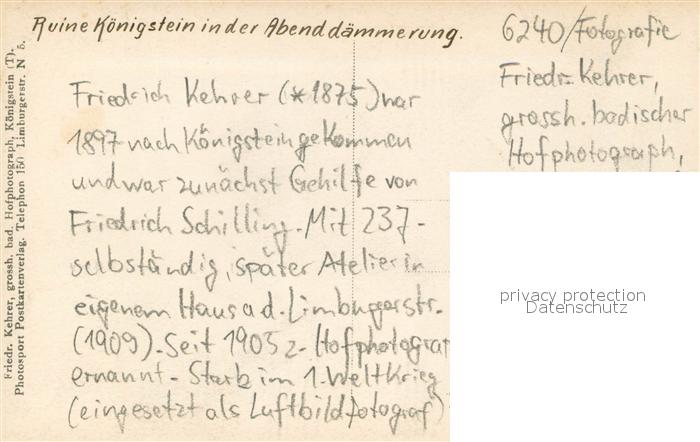 Ruine Königstein in der Abenddämmerung.
6240/Fotografie
Friedr. Kehrer,
grossh. badischer
Hofphotograph,
Friedrich Kehrer (*1875) war
1897 nach Königstein gekommen
und war zunächst Gehilfe von
Friedrich Schilling. Mit 23 J.
selbständig, später Atelier in
eigenem Haus a d. Limburgerstr.
(1909). Seit 1905 z. Hofphotograp
ernannt - Starb im 1. Weltkrieg
(eingesetzt als Luftbildfotograf)
Friedr. Kehrer, grossh. bad. Hofphotograph, Königstein (T).
Photosport Postkartenverlag. Telephon 150 Limburgerstr. N 5.
privacy protection
Datenschutz